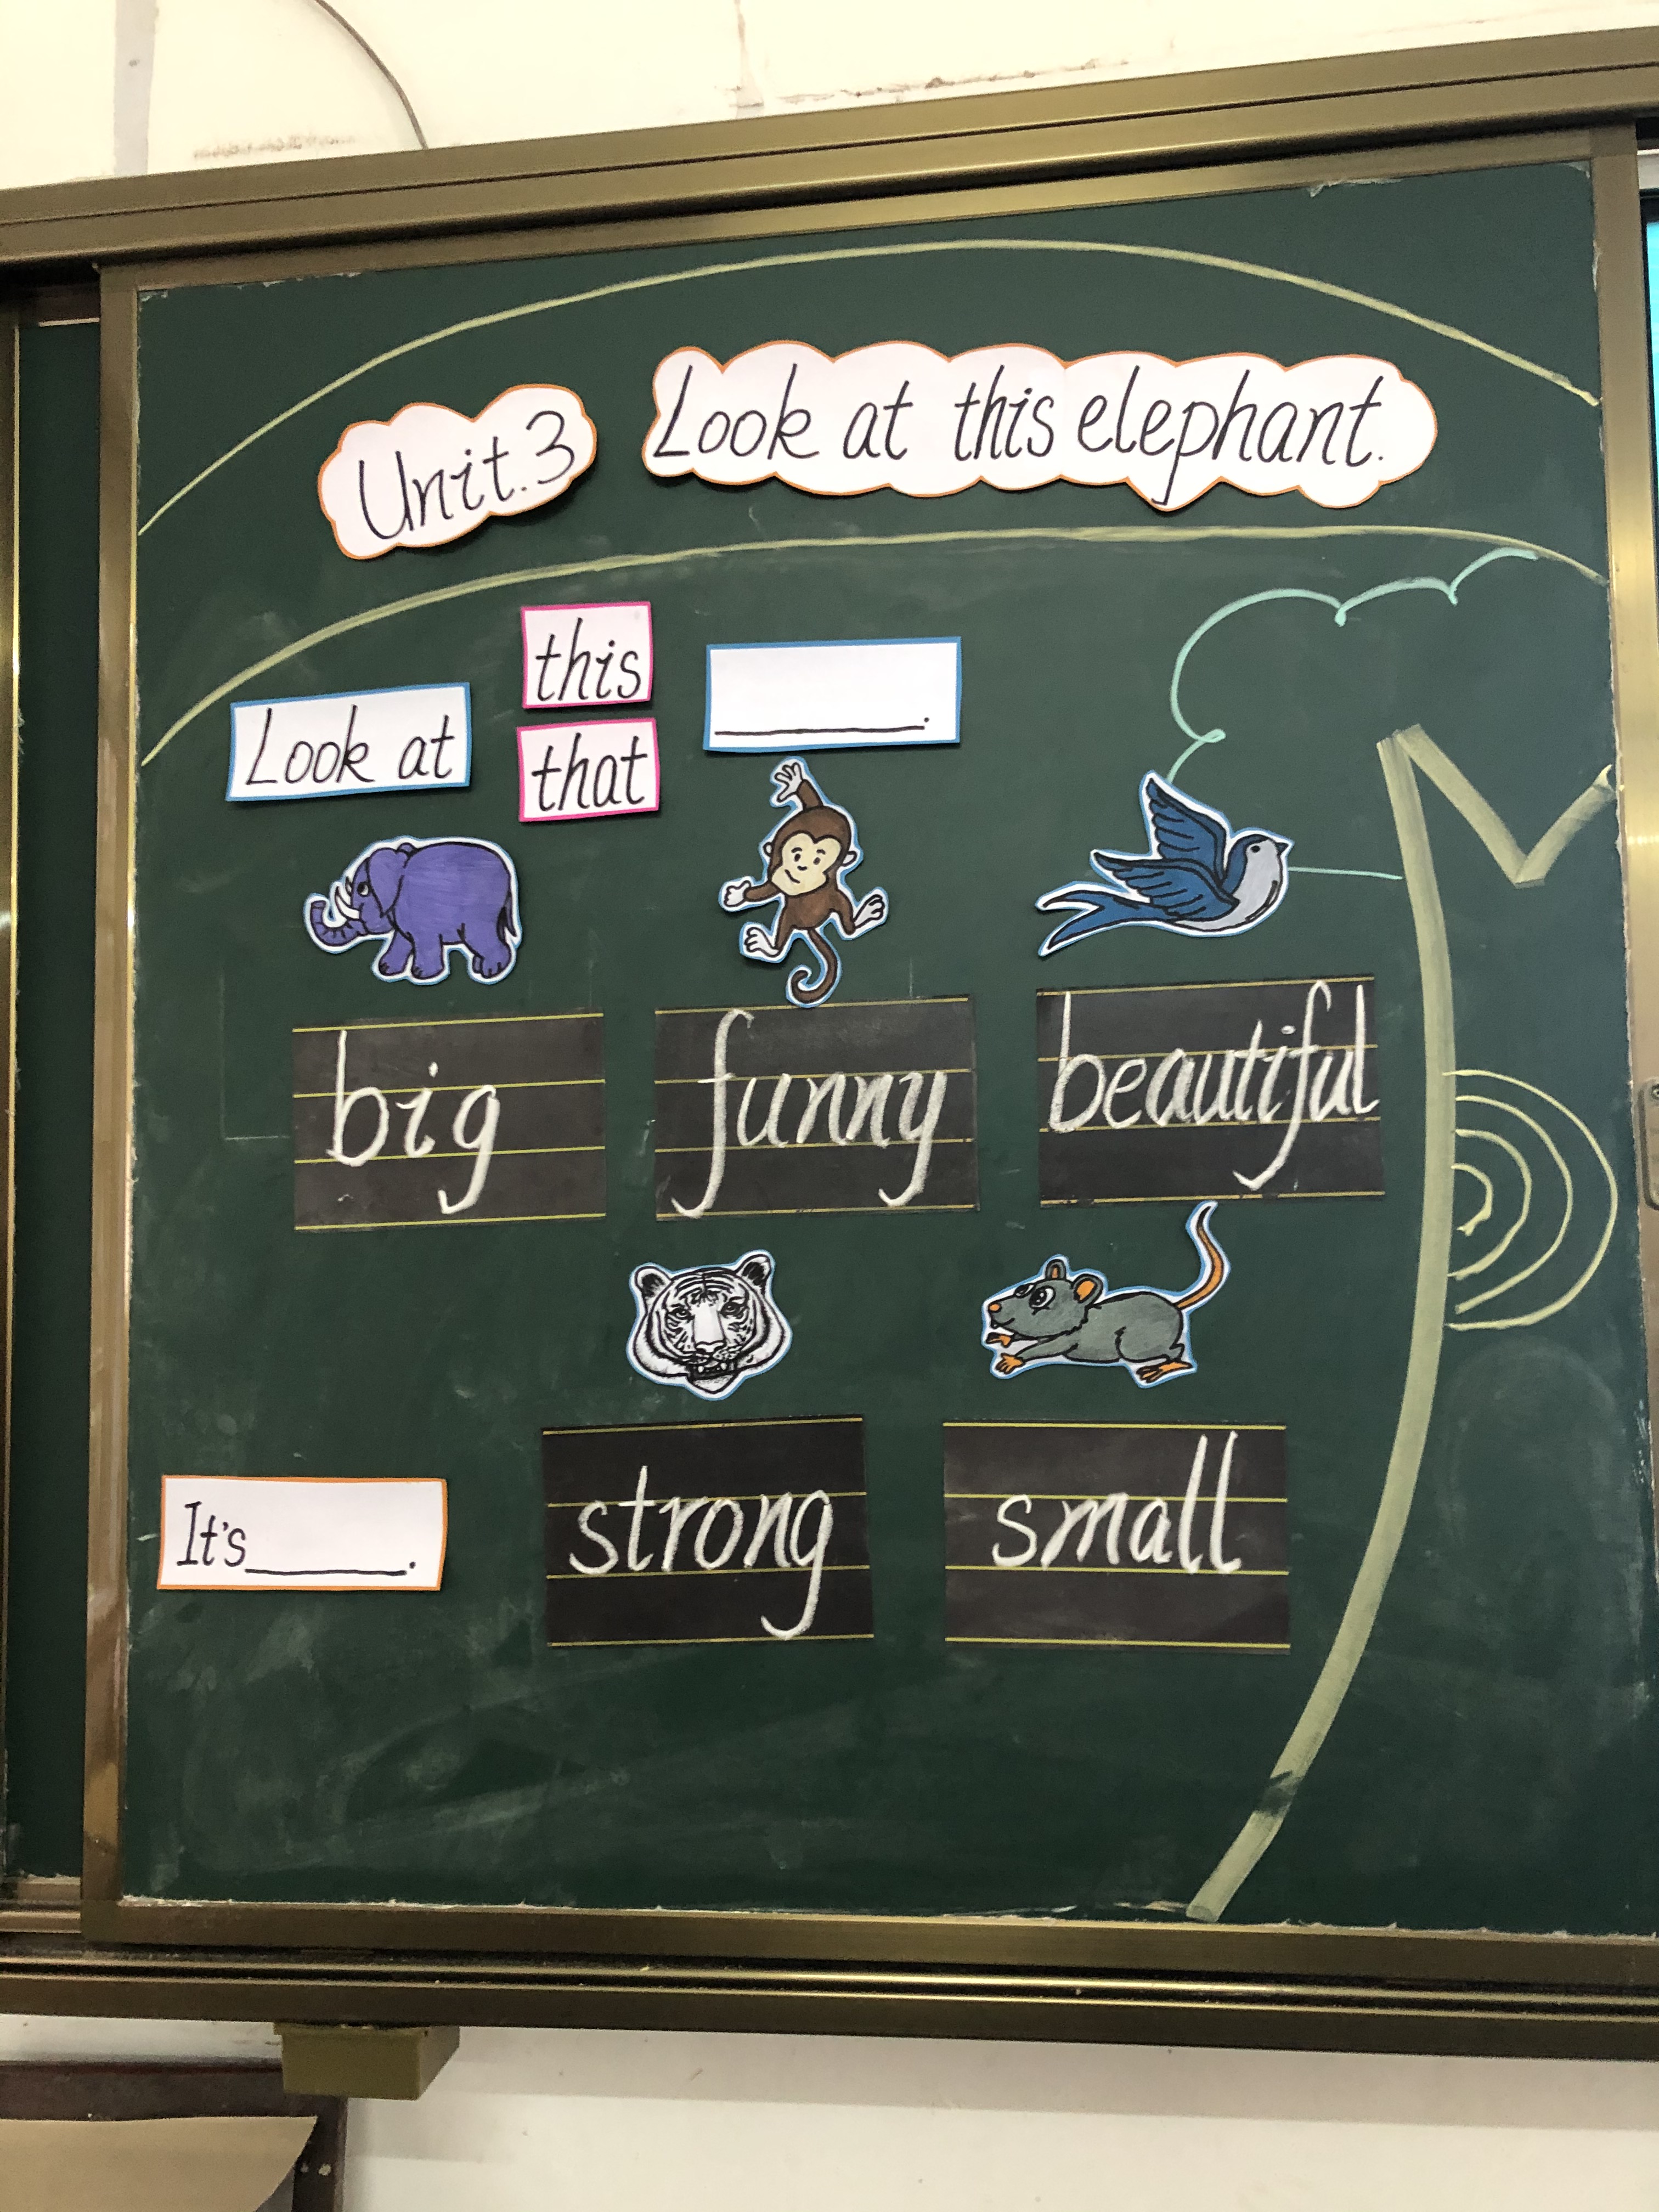 Unit.3 Look at this elephant.
this
Look at ________.
that
big funny beautiful
It's________. strong small